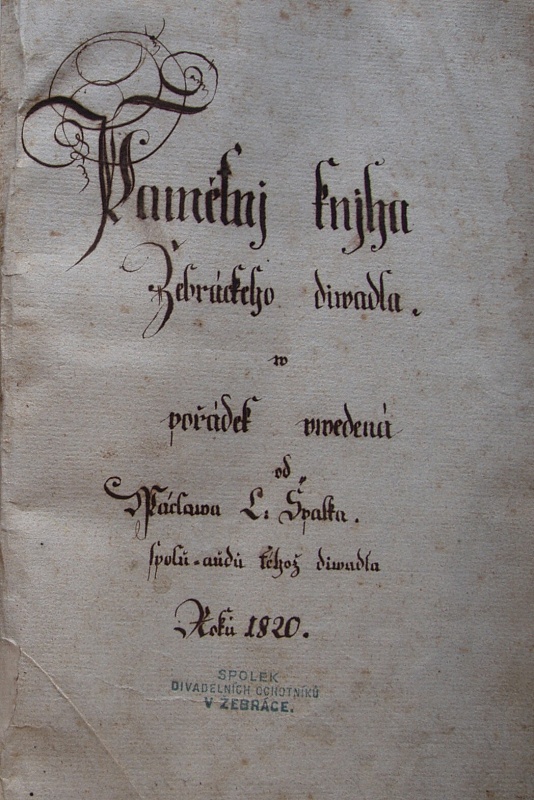 Pamětnj knjha
Žebráckého diwadla.
w
pořádek uwedená
od
Wáclawa L. Špatta.
spolu-audů téhož diwadla
Roků 1820.
SPOLEK
DIVADELNÍCH OCHOTNÍKŮ
V ŽEBRÁCE.